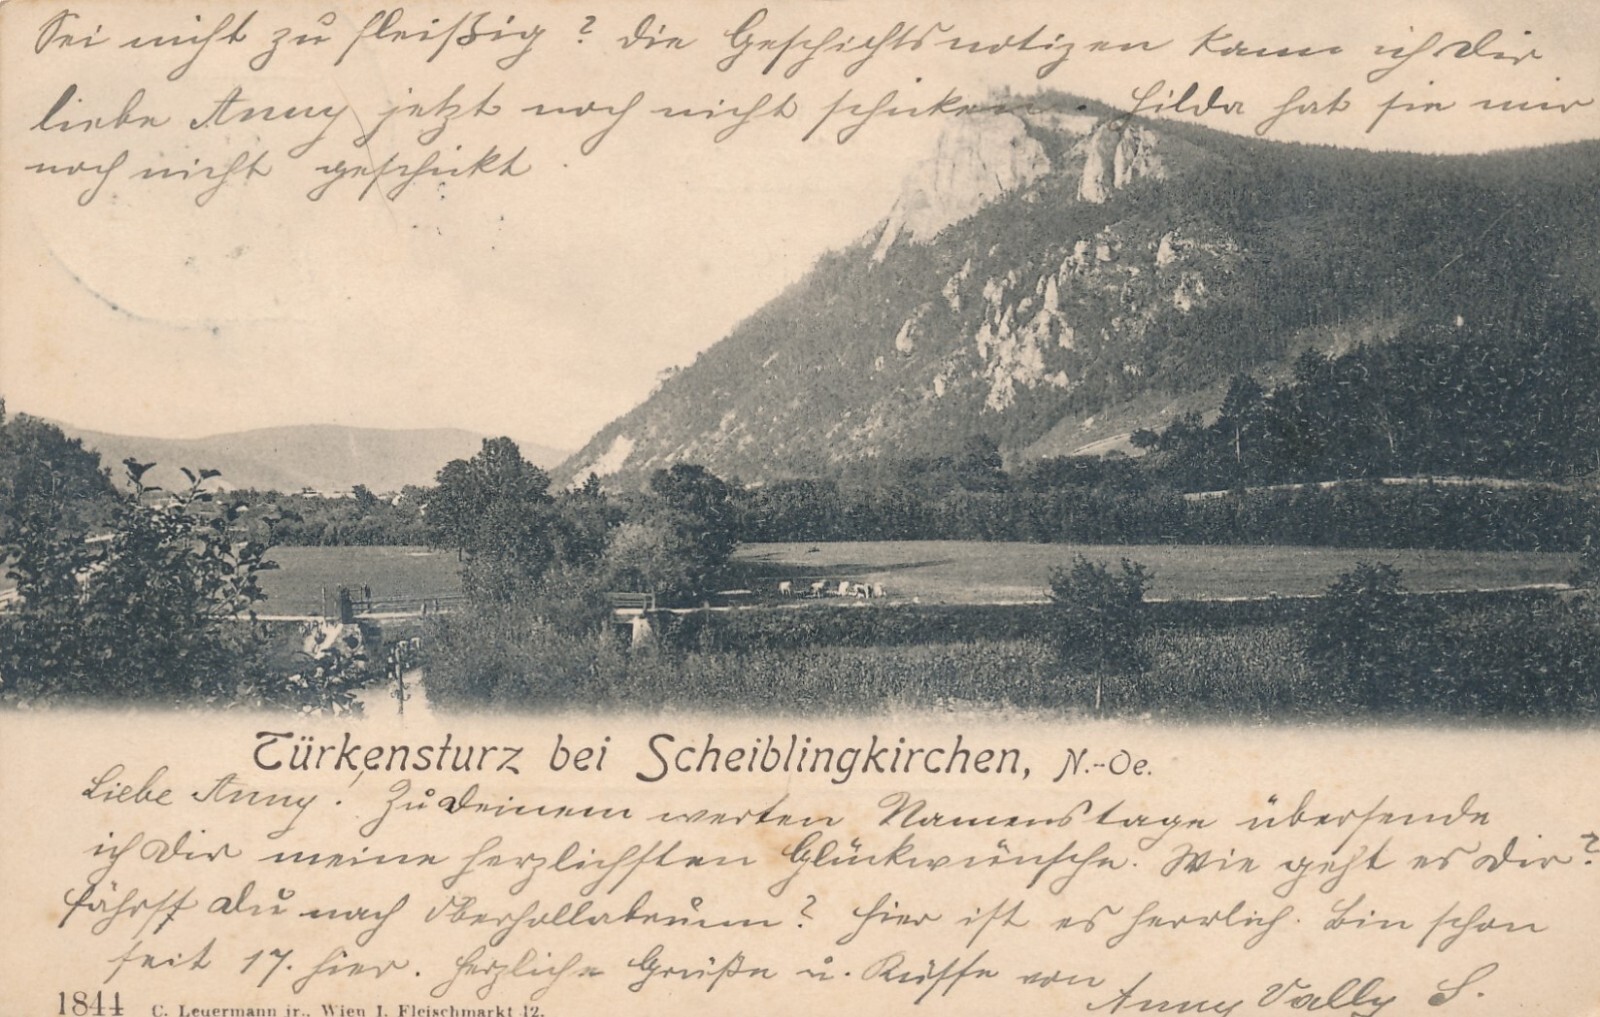 Sei nicht zu fleißig? Die Geschichtsnotizen kann ich Dir
liebe Anny jetzt noch nicht schicken. Hilda hat sie mir
noch nicht geschickt.
Türkensturz bei Scheiblingkirchen, N.-Oe.
Liebe Anny! Zu Deinem werten Namenstage übersende
ich Dir meine herzlichsten Glückwünsche. Wie geht es Dir?
Fährst Du nach Oberhollabrunn? Hier ist es herrlich. Bin schon
seit 17. hier. Herzliche Grüße u. Küsse von
Anny Vally S.
1844 C. Leuermann jr., Wien I. Fleischmarkt 12.